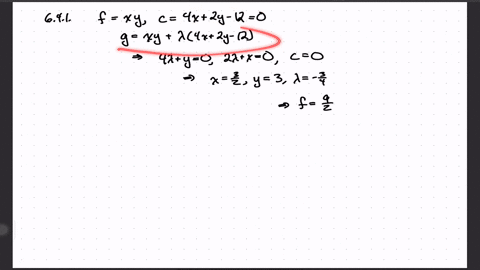 6.4.1. f = xy, c = 4x+2y-12=0
g = xy + λ(4x+2y-12)
⇒ 4λ+y=0, 2λ+x=0, c=0
⇒ x=3/2, y=3, λ=-3/4
⇒ f=9/2